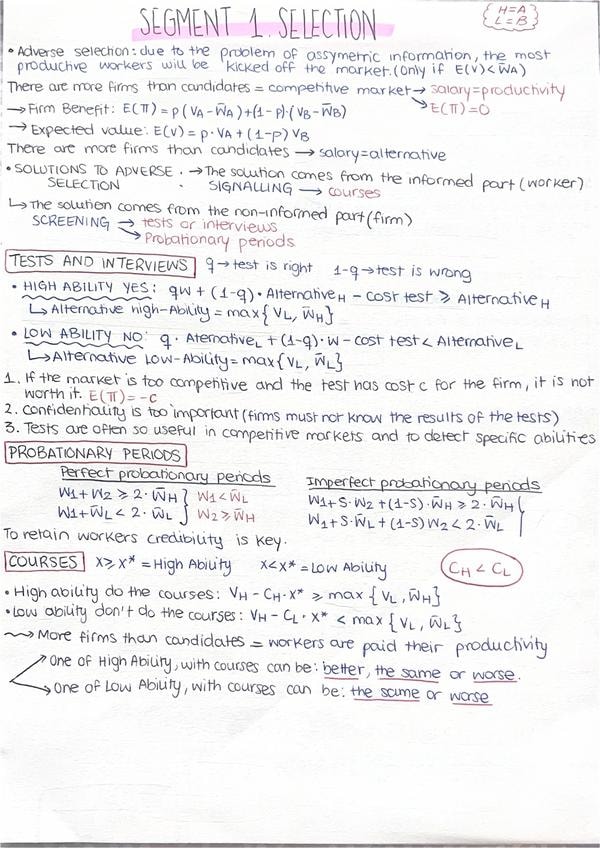 SEGMENT 1. SELECTION
H=A
L=B
• Adverse selection: due to the problem of assymetric information, the most
productive workers will be kicked off the market. (Only if E(V) < W̄A)
There are more firms than candidates = competitive market → salary=productivity
→ E(π)=0
→ Firm Benefit: E(π) = p(VA - W̄A) + (1-p)·(VB - W̄B)
→ Expected value: E(V) = p·VA + (1-p) VB
There are more firms than candidates → salary=alternative
• SOLUTIONS TO ADVERSE SELECTION · → The solution comes from the informed part (worker)
· SIGNALLING → courses
↳ The solution comes from the non-informed part (firm)
SCREENING → tests or interviews
→ Probationary periods
TESTS AND INTERVIEWS q → test is right 1-q → test is wrong
• HIGH ABILITY YES: qw + (1-q)· Alternative H - cost test ⩾ Alternative H
↳ Alternative high-Ability = max{VL, W̄H}
• LOW ABILITY NO: q· Aternative L + (1-q)· w - cost test < Alternative L
↳ Alternative Low-Ability = max{VL, W̄L}
1. If the market is too competitive and the test has cost c for the firm, it is not
worth it. E(π) = -c
2. Confidentiality is too important (firms must not know the results of the tests)
3. Tests are often so useful in competitive markets and to detect specific abilities
PROBATIONARY PERIODS
Perfect probationary periods Imperfect probationary periods
W1 + W2 ⩾ 2· W̄H } W1 < W̄L W1 + S· W2 + (1-S)· W̄H ⩾ 2· W̄H
W1 + W̄L < 2· W̄L } W2 ⩾ W̄H W1 + S· W̄L + (1-S) W2 < 2· W̄L
To retain workers credibility is key.
COURSES X⩾X* = High Ability X<X* = Low Ability CH < CL
• High ability do the courses: VH - CH· X* ⩾ max {VL, W̄H}
• Low ability don't do the courses: VH - CL· X* < max {VL, W̄L}
⇝ More firms than candidates = workers are paid their productivity
→ One of High Ability, with courses can be: better, the same or worse.
→ One of Low Ability, with courses can be: the same or worse